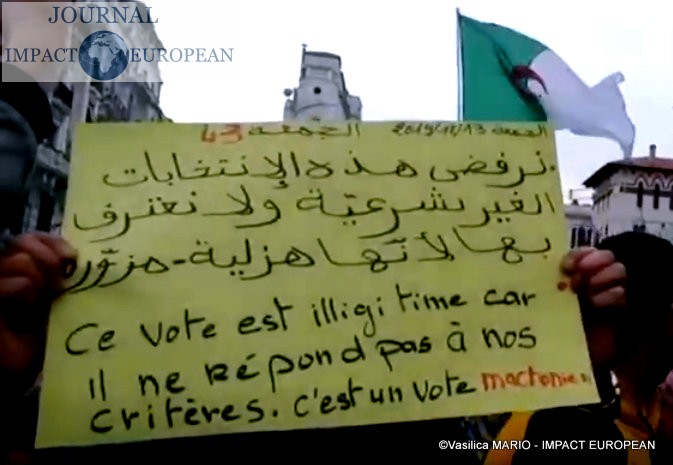 JOURNAL
IMPACT EUROPEAN
43 الجمعة الجمعة 2019/12/13
نرفض هذه الإنتخابات
الغير شرعيّة ولا نعترف
بها لأنّها هزلية - مزوّرة
Ce vote est illigitime car
il ne répond pas à nos
critères. c'est un vote
©Vasilica MARIO - IMPACT EUROPEAN